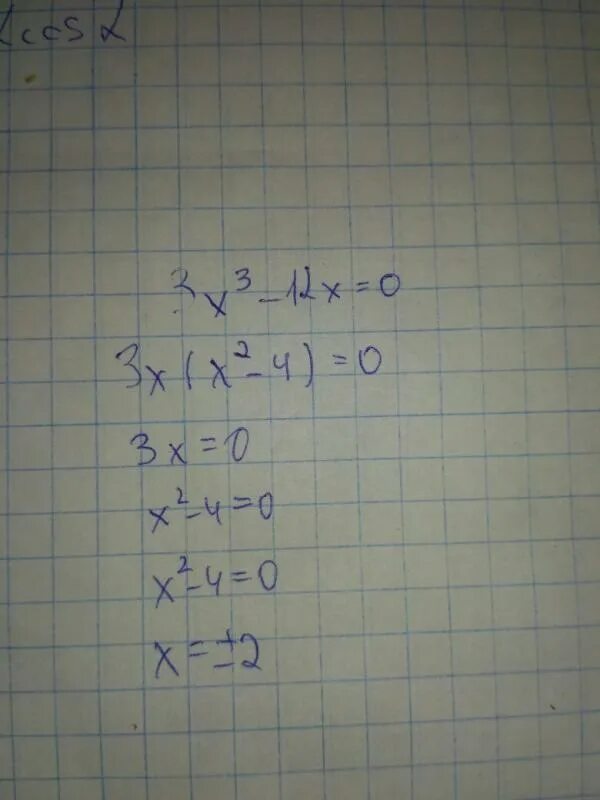 cos α
3x³-12x=0
3x(x²-4)=0
3x=0
x²-4=0
x²-4=0
x=±2